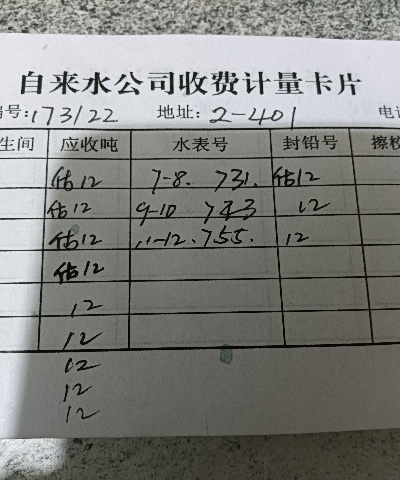 自来水公司收费计量卡片
编号:173122 地址:2-401 电话
生间 应收吨 水表号 封铅号 擦校
估12 7-8. 731. 估12
估12 9-10 743 12
估12 11-12. 755. 12
估12
12
12
12
12
12